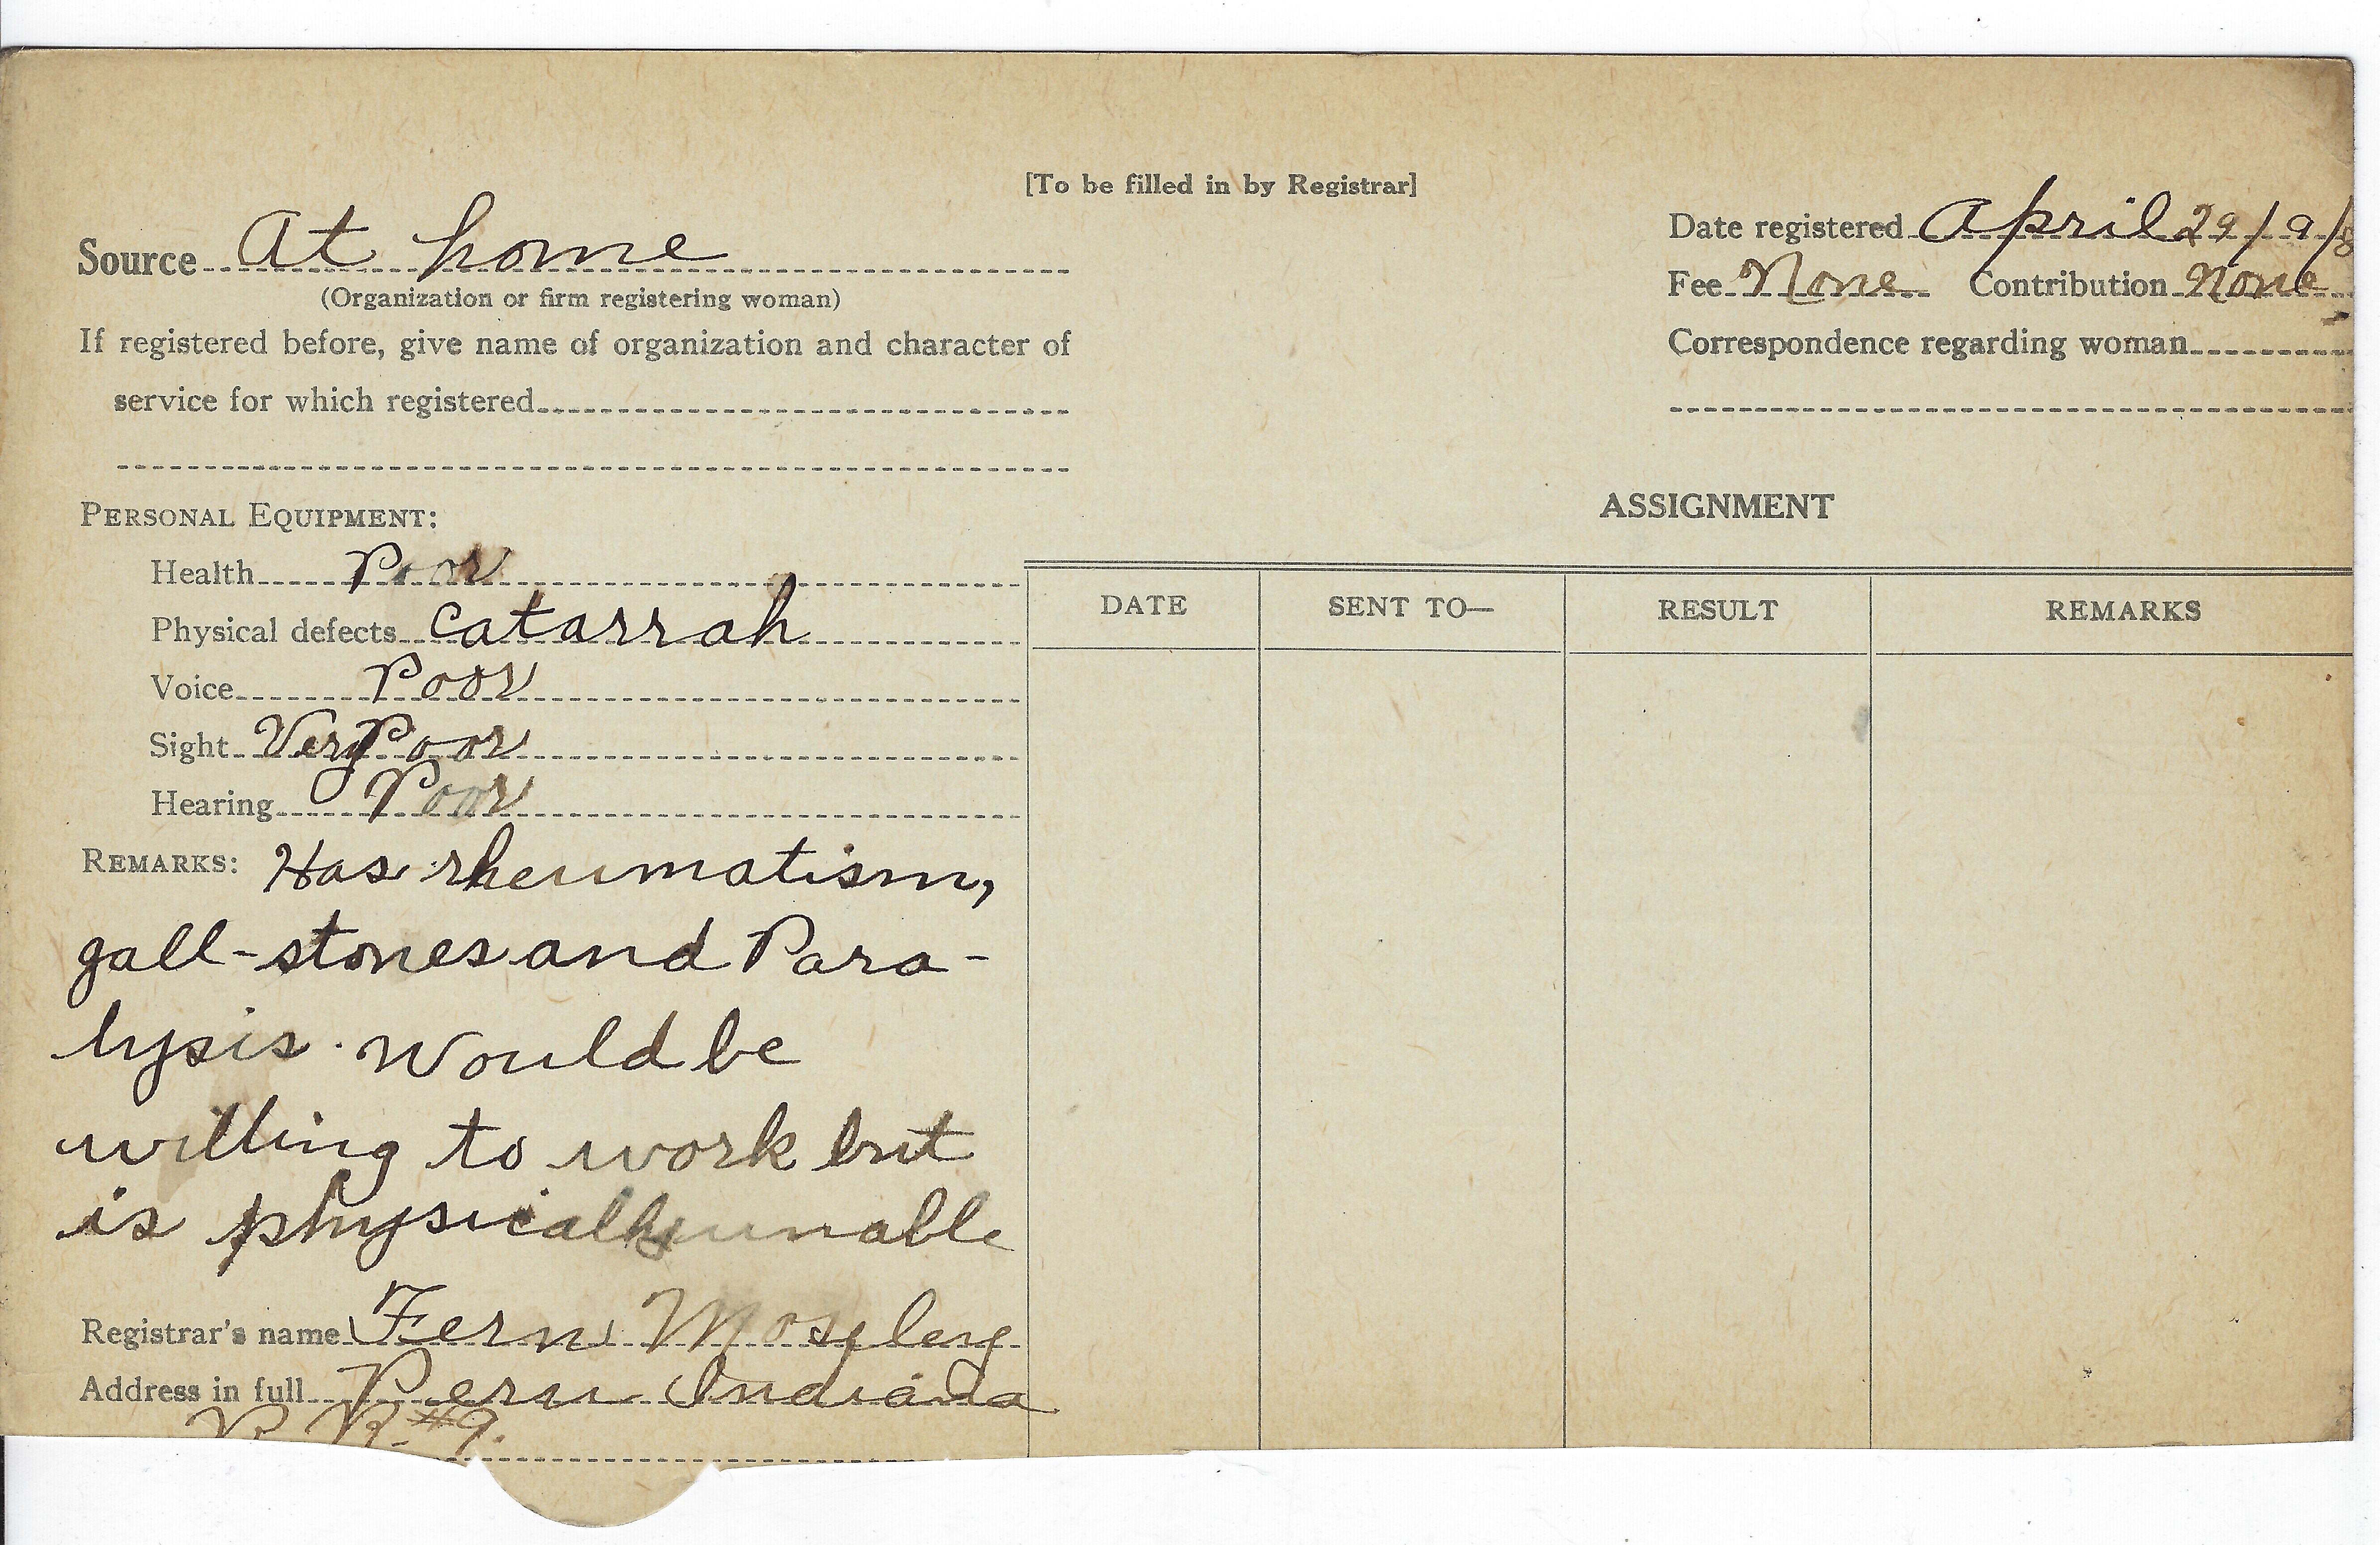 [To be filled in by Registrar]
Source At home
(Organization or firm registering woman)
If registered before, give name of organization and character of
service for which registered
Date registered April 29/9/8
Fee None Contribution None
Correspondence regarding woman
PERSONAL EQUIPMENT:
Health Poor
Physical defects catarrah
Voice Poor
Sight Very Poor
Hearing Poor
REMARKS: Has rheumatism,
gall-stones and Para-
lysis. Would be
willing to work but
is physically unable
Registrar's name Fern Mosley
Address in full Peru Indiana
R R #9.
ASSIGNMENT
DATE SENT TO— RESULT REMARKS